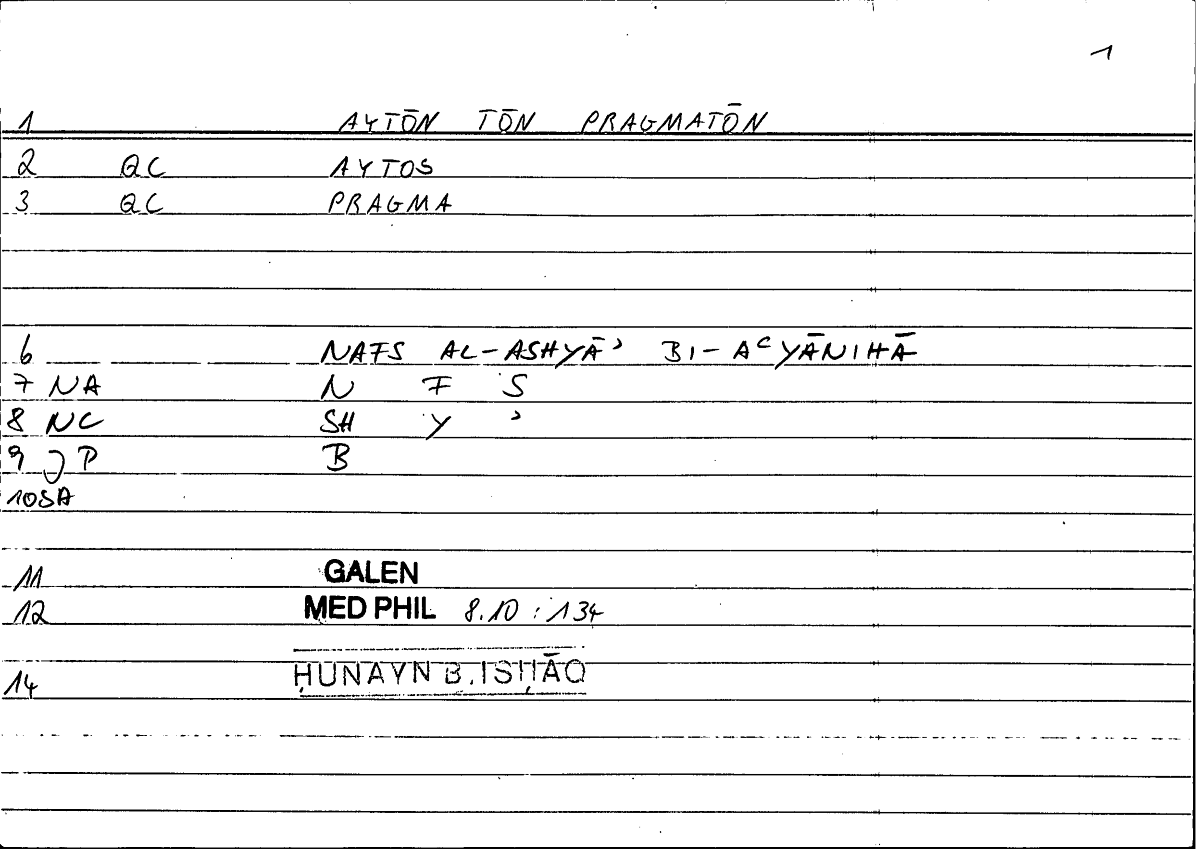 1
1 AYTŌN TŌN PRAGMATŌN
2 QC AYTOS
3 QC PRAGMA
6 NAFS AL-ASHYĀʾ BI-AʿYĀNIHĀ
7 NA N F S
8 NC SH Y ʾ
9 JP B
10 SA
11 GALEN
12 MED PHIL 8.10 : 134
14 ḤUNAYN B. ISḤĀQ